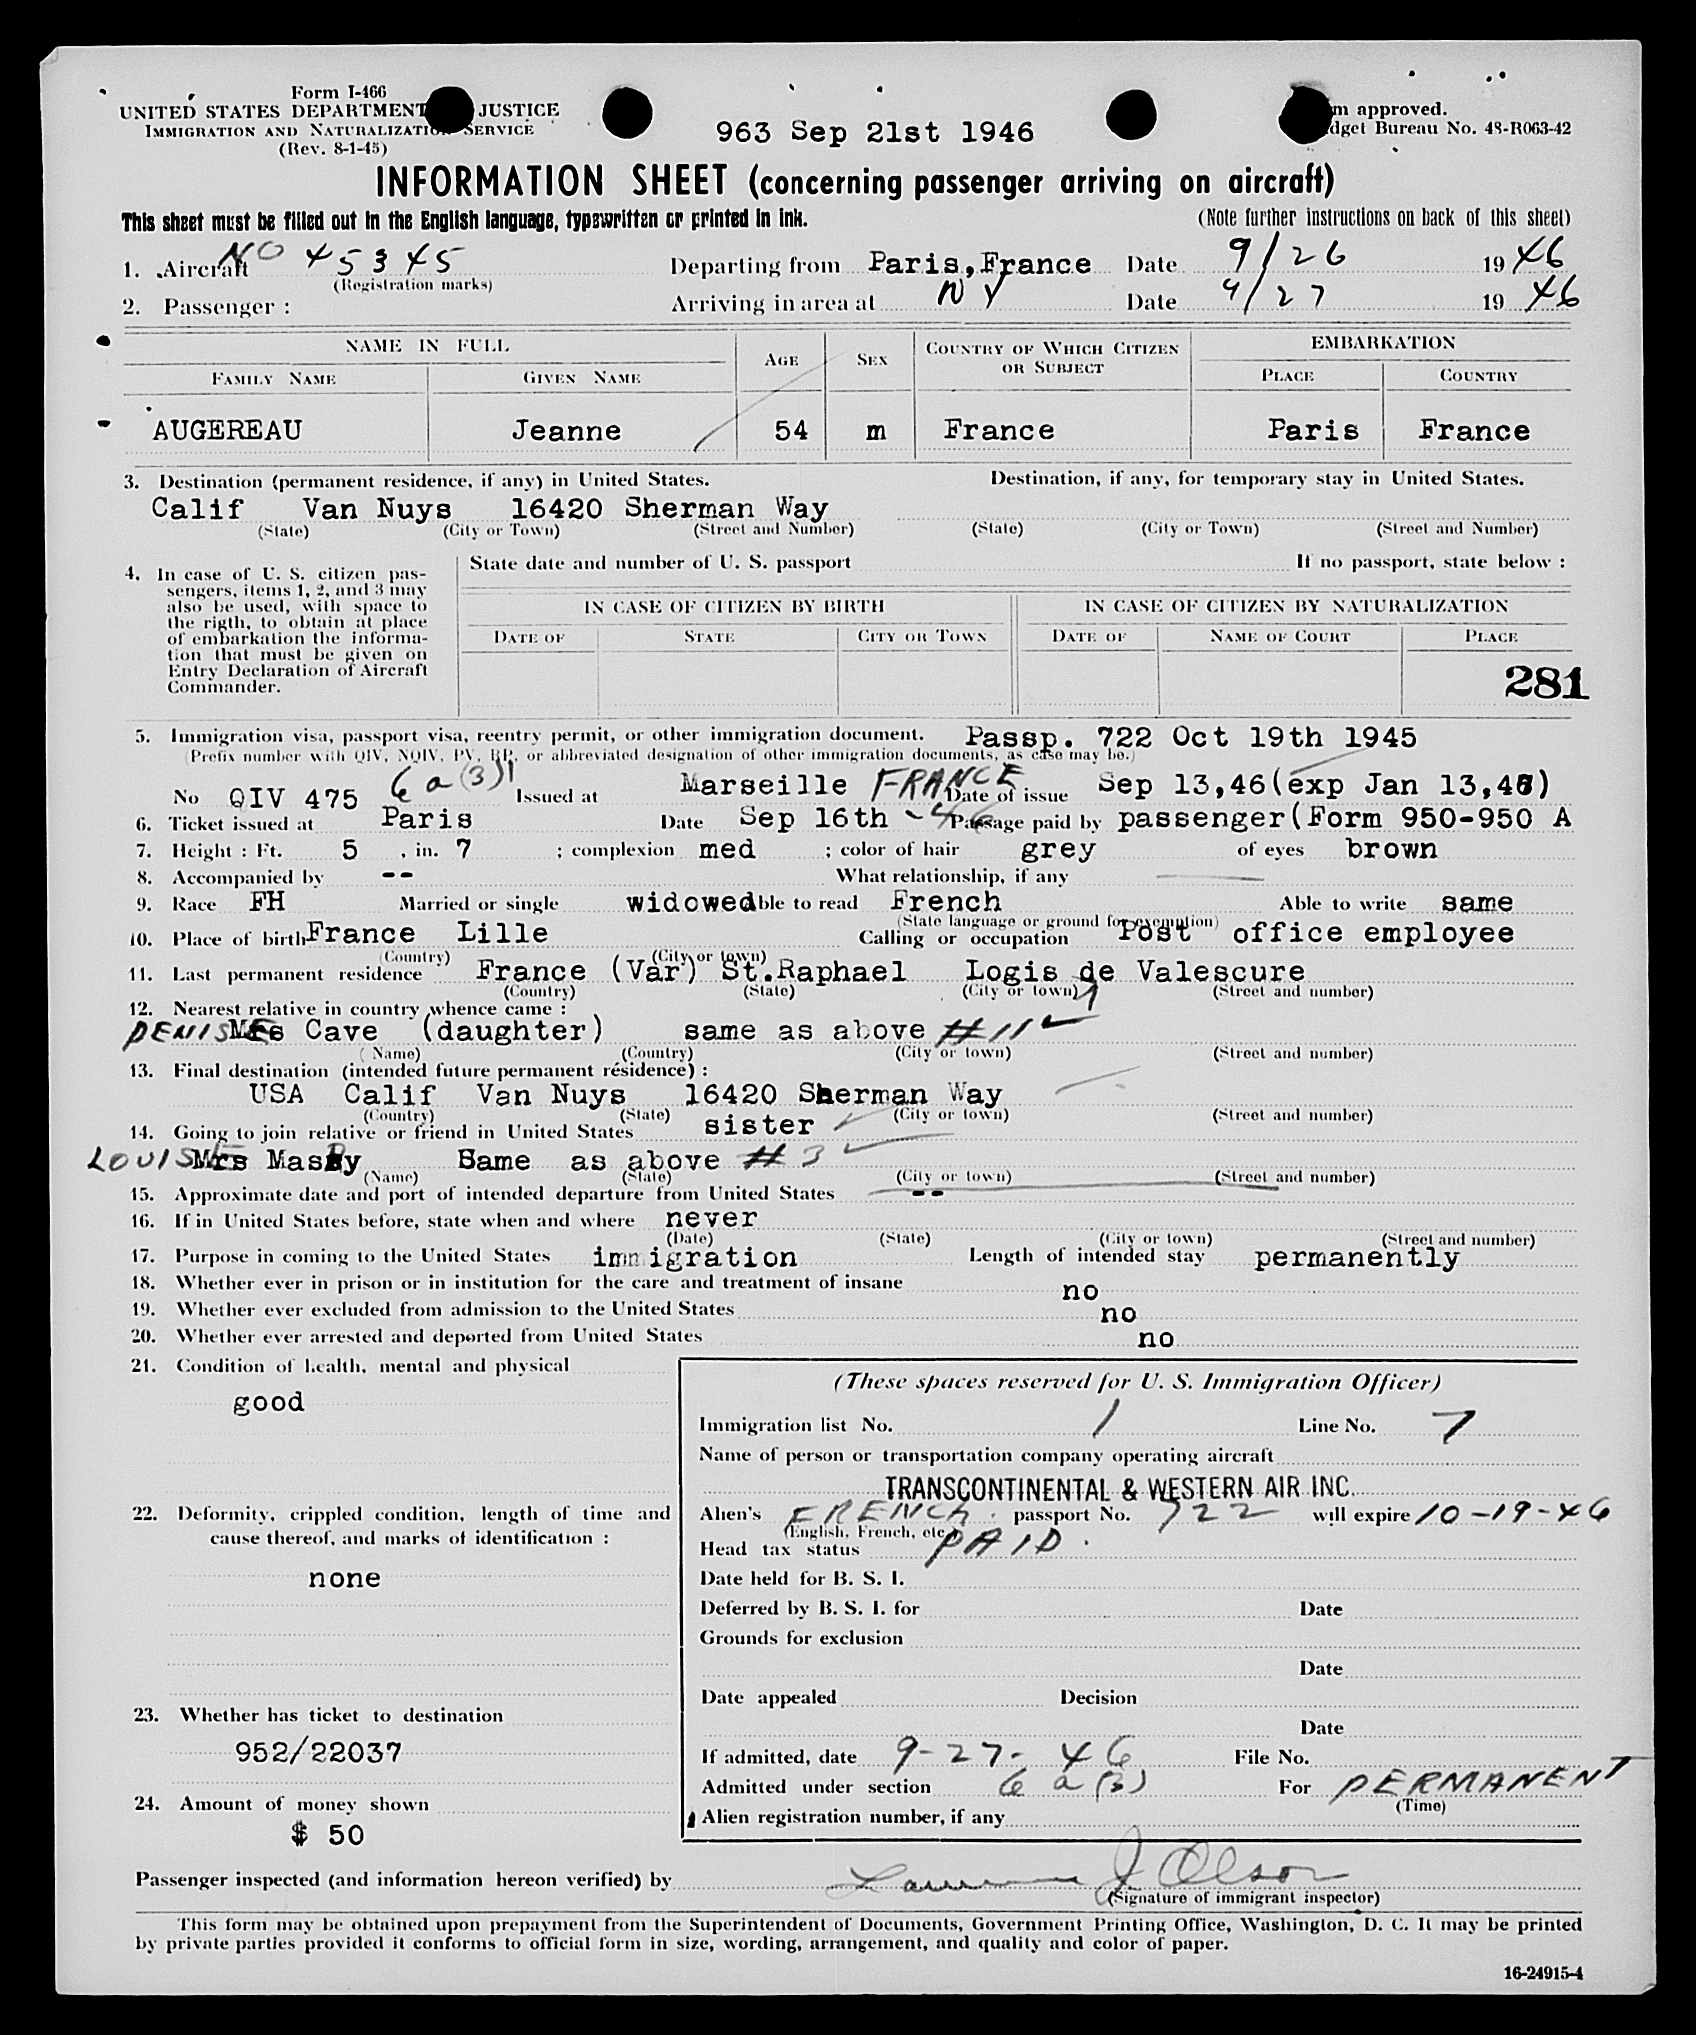 Form I-466
UNITED STATES DEPARTMENT JUSTICE
IMMIGRATION AND NATURALIZATION SERVICE
(Rev. 8-1-45)
963 Sep 21st 1946
m approved.
dget Bureau No. 43-R063-42
INFORMATION SHEET (concerning passenger arriving on aircraft)
This sheet must be filled out in the English language, typewritten or printed in ink.
(Note further instructions on back of this sheet)
1. Aircraft NO 45345 Departing from Paris,France Date 9/26 1946
(Registration marks)
2. Passenger : Arriving in area at NY Date 9/27 1946
NAME IN FULL AGE SEX COUNTRY OF WHICH CITIZEN OR SUBJECT EMBARKATION
FAMILY NAME GIVEN NAME PLACE COUNTRY
AUGEREAU Jeanne 54 m France Paris France
3. Destination (permanent residence, if any) in United States. Destination, if any, for temporary stay in United States.
Calif Van Nuys 16420 Sherman Way
(State) (City or Town) (Street and Number) (State) (City or Town) (Street and Number)
4. In case of U. S. citizen pas-
sengers, items 1, 2, and 3 may
also be used, with space to
the rigth, to obtain at place
of embarkation the informa-
tion that must be given on
Entry Declaration of Aircraft
Commander.
State date and number of U. S. passport If no passport, state below :
IN CASE OF CITIZEN BY BIRTH IN CASE OF CITIZEN BY NATURALIZATION
DATE OF STATE CITY OR TOWN DATE OF NAME OF COURT PLACE
281
5. Immigration visa, passport visa, reentry permit, or other immigration document. Passp. 722 Oct 19th 1945
(Prefix number with QIV, NQIV, PV, RP, or abbreviated designation of other immigration documents, as case may be.)
No QIV 475 6a(3) Issued at Marseille FRANCE Date of issue Sep 13,46(exp Jan 13,48)
6. Ticket issued at Paris Date Sep 16th -46 Passage paid by passenger(Form 950-950 A
7. Height : Ft. 5 , in. 7 ; complexion med ; color of hair grey of eyes brown
8. Accompanied by -- What relationship, if any
9. Race FH Married or single widowed able to read French Able to write same
(State language or ground for exemption)
10. Place of birth France Lille Calling or occupation Post office employee
(Country) (City or town)
11. Last permanent residence France (Var) St.Raphael Logis de Valescure
(Country) (State) (City or town) (Street and number)
12. Nearest relative in country whence came :
DENISE Mrs Cave (daughter) same as above #11
(Name) (Country) (City or town) (Street and number)
13. Final destination (intended future permanent résidence) :
USA Calif Van Nuys 16420 Sherman Way
(Country) (State) (City or town) (Street and number)
14. Going to join relative or friend in United States sister
LOUISE Mrs MasBy Same as above #3
(Name) (State) (City or town) (Street and number)
15. Approximate date and port of intended departure from United States --
16. If in United States before, state when and where never
(Date) (State) (City or town) (Street and number)
17. Purpose in coming to the United States immigration Length of intended stay permanently
18. Whether ever in prison or in institution for the care and treatment of insane no
19. Whether ever excluded from admission to the United States no
20. Whether ever arrested and deported from United States no
21. Condition of health, mental and physical
good
22. Deformity, crippled condition, length of time and
cause thereof, and marks of identification :
none
23. Whether has ticket to destination
952/22037
24. Amount of money shown
$ 50
(These spaces reserved for U. S. Immigration Officer)
Immigration list No. 1 Line No. 7
Name of person or transportation company operating aircraft
TRANSCONTINENTAL & WESTERN AIR INC.
Alien's FRENCH passport No. 722 will expire 10-19-46
(English, French, etc.)
Head tax status PAID.
Date held for B. S. I.
Deferred by B. S. I. for Date
Grounds for exclusion
Date
Date appealed Decision
Date
If admitted, date 9-27-46 File No.
Admitted under section 6a(3) For PERMANENT
(Time)
Alien registration number, if any
Passenger inspected (and information hereon verified) by Lawrence J Olson
(Signature of immigrant inspector)
This form may be obtained upon prepayment from the Superintendent of Documents, Government Printing Office, Washington, D. C. It may be printed
by private parties provided it conforms to official form in size, wording, arrangement, and quality and color of paper.
16-24915-4